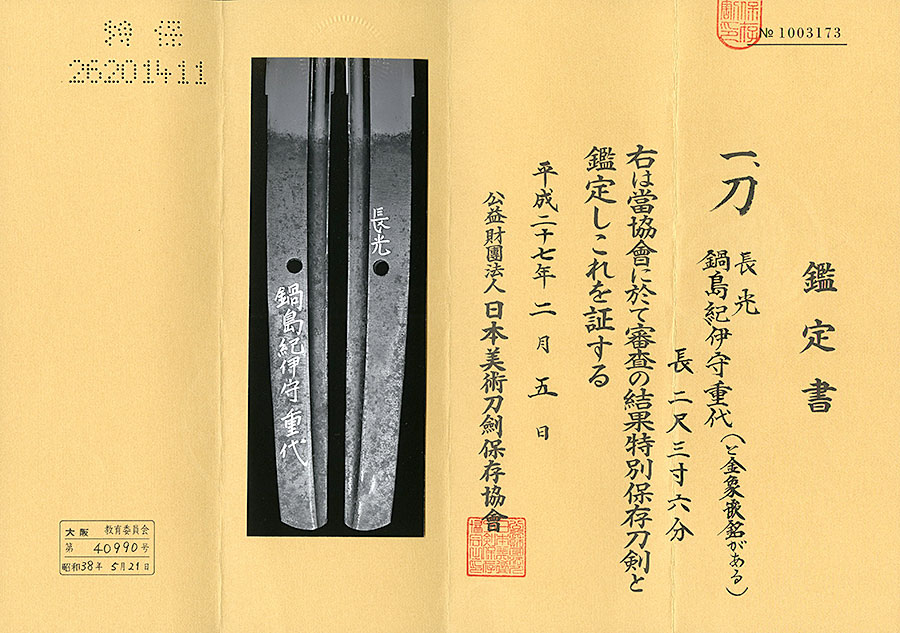 № 1003173
鑑定書
一、刀
長光
鍋島紀伊守重代(と金象嵌銘がある)
長 二尺三寸六分
右は當協會に於て審査の結果特別保存刀剣と
鑑定しこれを証する
平成二十七年二月五日
公益財團法人 日本美術刀劍保存協會
長光
鍋島紀伊守重代
特保
26201411
大阪 教育委員会
第 40990 号
昭和38年 5月21日